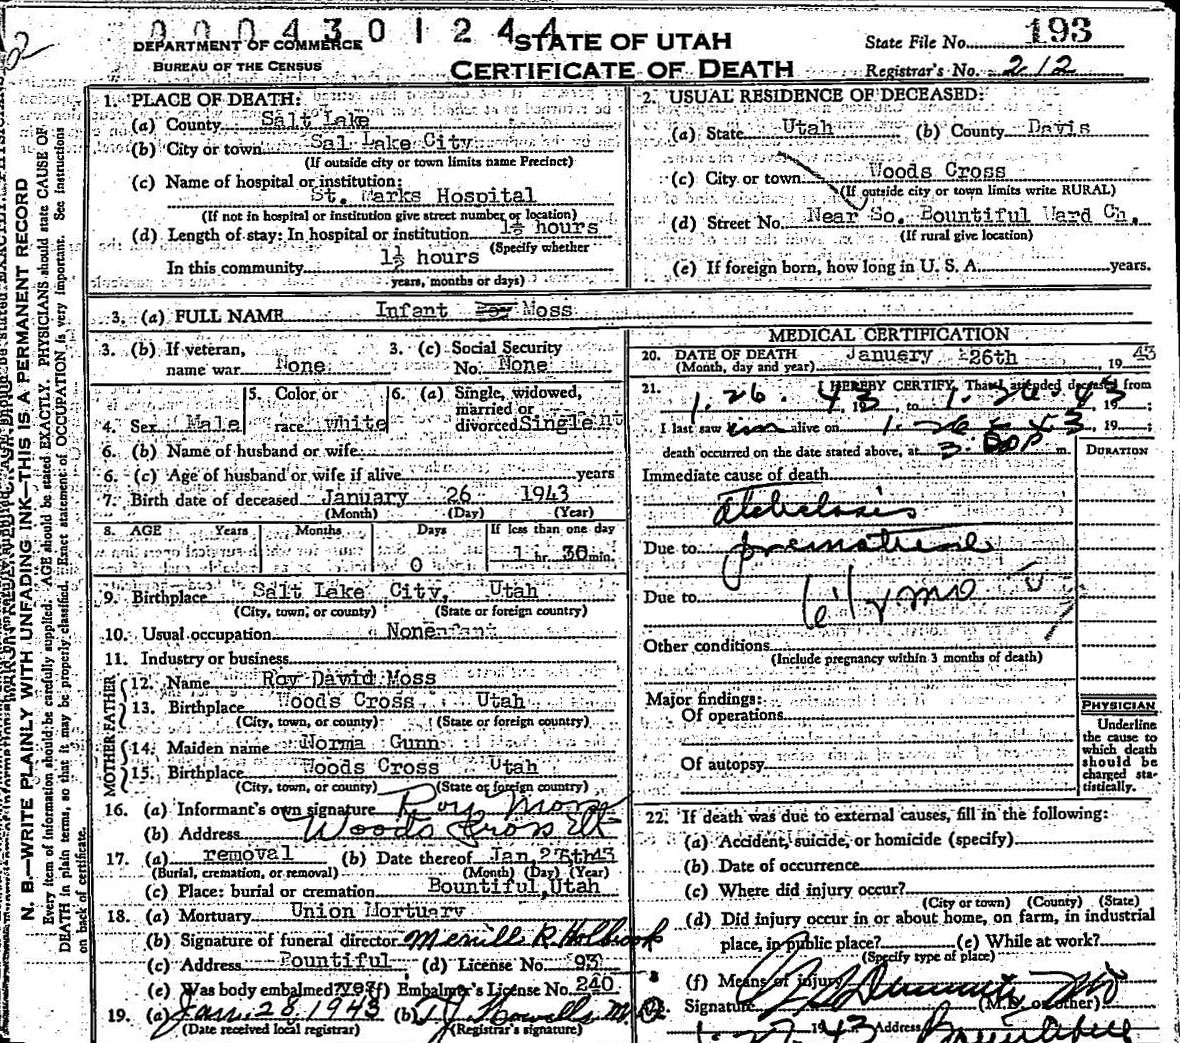 0004301244
193
DEPARTMENT OF COMMERCE
BUREAU OF THE CENSUS
STATE OF UTAH
CERTIFICATE OF DEATH
State File No.
Registrar's No. 212
N. B.—WRITE PLAINLY WITH UNFADING INK—THIS IS A PERMANENT RECORD
Every item of information should be carefully supplied. AGE should be stated EXACTLY. PHYSICIANS should state CAUSE OF
DEATH in plain terms, so that it may be properly classified. Exact statement of OCCUPATION is very important. See instructions
on back of certificate.
1. PLACE OF DEATH:
(a) County Salt Lake
(b) City or town Sal Lake City
(If outside city or town limits name Precinct)
(c) Name of hospital or institution:
St. Marks Hospital
(If not in hospital or institution give street number or location)
(d) Length of stay: In hospital or institution 1½ hours
(Specify whether
In this community 1½ hours
years, months or days)
2. USUAL RESIDENCE OF DECEASED:
(a) State Utah (b) County Davis
(c) City or town Woods Cross
(If outside city or town limits write RURAL)
(d) Street No. Near So. Bountiful Ward Ch.
(If rural give location)
(e) If foreign born, how long in U. S. A. years.
3. (a) FULL NAME Infant Boy Moss
3. (b) If veteran, name war None
3. (c) Social Security No. None
4. Sex Male
5. Color or race white
6. (a) Single, widowed, married or divorced Single
6. (b) Name of husband or wife
6. (c) Age of husband or wife if alive years
7. Birth date of deceased January 26 1943
(Month) (Day) (Year)
8. AGE Years Months Days If less than one day
0 1 hr. 30 min.
9. Birthplace Salt Lake City, Utah
(City, town, or county) (State or foreign country)
10. Usual occupation None
11. Industry or business
FATHER
12. Name Roy David Moss
13. Birthplace Woods Cross Utah
(City, town, or county) (State or foreign country)
MOTHER
14. Maiden name Norma Gunn
15. Birthplace Woods Cross Utah
(City, town, or county) (State or foreign country)
16. (a) Informant's own signature Roy Moss
(b) Address Woods Cross Ut
17. (a) removal (b) Date thereof Jan, 27th 43
(Burial, cremation, or removal) (Month) (Day) (Year)
(c) Place: burial or cremation Bountiful, Utah
18. (a) Mortuary Union Mortuary
(b) Signature of funeral director Merrill R. Holbrook
(c) Address Bountiful (d) License No. 93
(e) Was body embalmed? yes (f) Embalmer's License No. 240
19. (a) Jan. 28, 1943 (b) T. J. Howells M.D.
(Date received local registrar) (Registrar's signature)
MEDICAL CERTIFICATION
20. DATE OF DEATH January 26th, 1943
(Month, day and year)
21. I HEREBY CERTIFY, That I attended deceased from
1. 26. 43, 19 to 1. 26. 43, 19 ;
I last saw him alive on 1. 26 43, 19 ;
death occurred on the date stated above, at 3: m.
DURATION
Immediate cause of death
Atelectasis
Due to premature
Due to 6½ mo
Other conditions
(Include pregnancy within 3 months of death)
Major findings:
Of operations
Of autopsy
PHYSICIAN
Underline
the cause to
which death
should be
charged sta-
tistically.
22. If death was due to external causes, fill in the following:
(a) Accident, suicide, or homicide (specify)
(b) Date of occurrence
(c) Where did injury occur?
(City or town) (County) (State)
(d) Did injury occur in or about home, on farm, in industrial
place, in public place? (e) While at work?
(Specify type of place)
(f) Means of injury
Signature (M. D. or other)
1. 27 1943 Address Bountiful